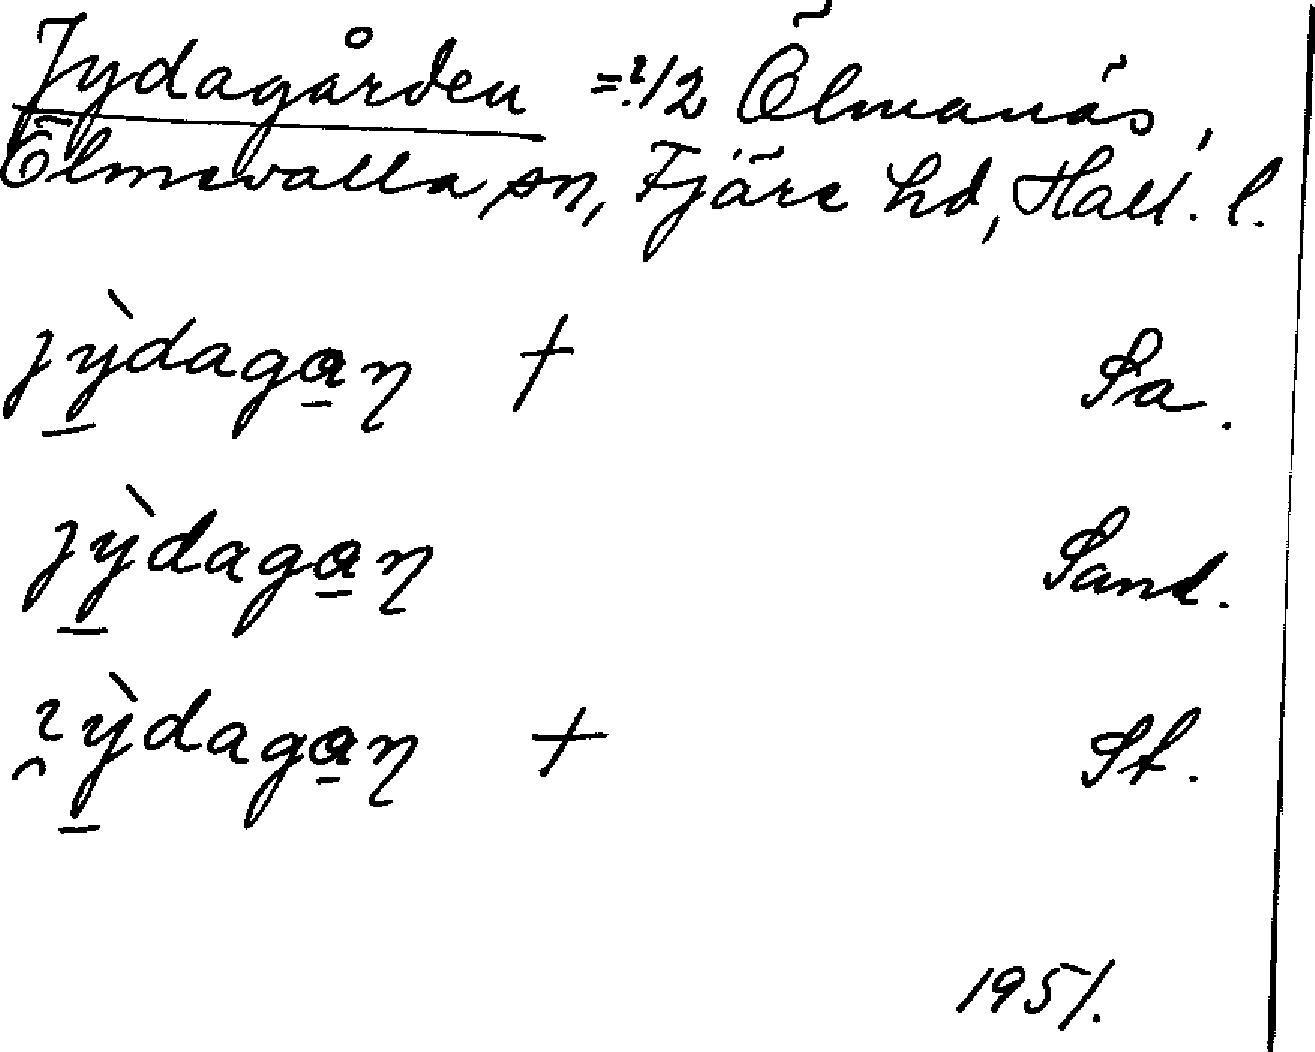 Jydagården =?1/2 Ölmanäs,
Ölmevalla sn, Fjäre hd, Hall. l.
jỳ̱daga̱ꞃ †
Sa.
jỳ̱daga̱ꞃ
Sand.
ỳ̱daga̱ꞃ †
St.
1951.